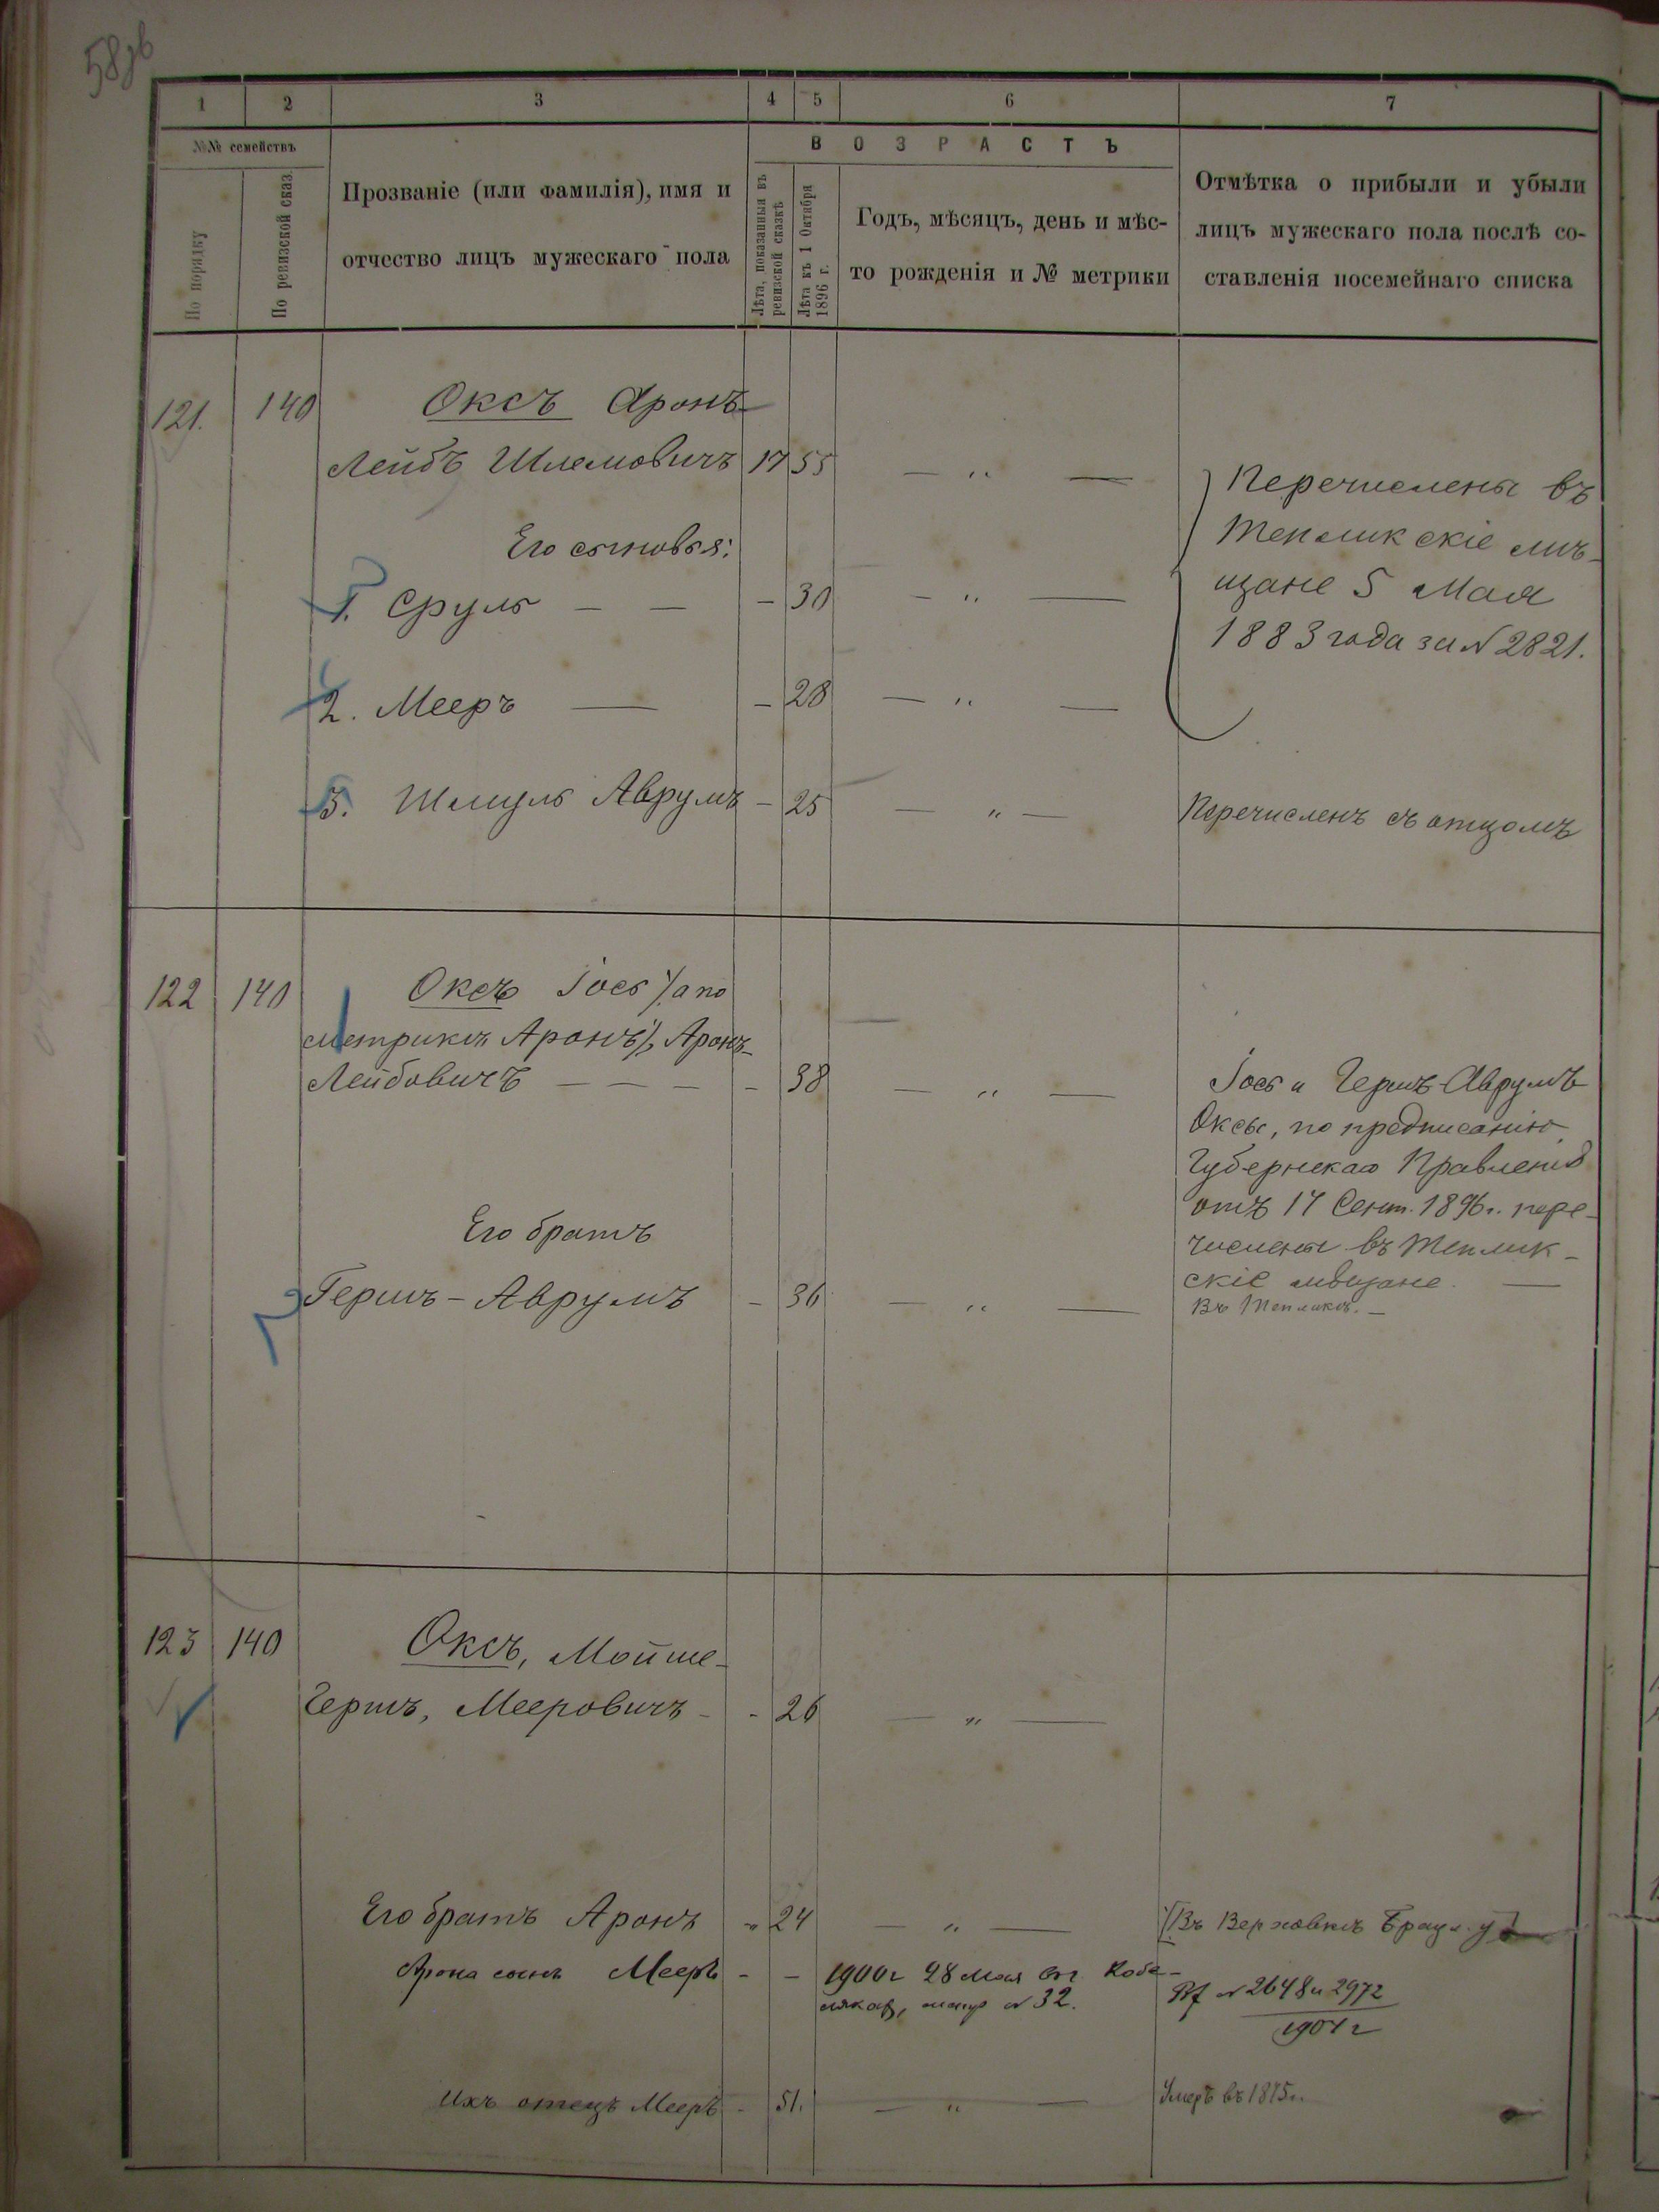 58 зв
1 2 3 4 5 6 7
№№ семействъ
По порядку
По ревизской сказ.
Прозваніе (или фамилія), имя и
отчество лицъ мужескаго пола
ВОЗРАСТЪ
Лѣта, показанныя въ
ревизской сказкѣ
Лѣта къ 1 Октября
1896 г.
Годъ, мѣсяцъ, день и мѣс-
то рожденія и № метрики
Отмѣтка о прибыли и убыли
лицъ мужескаго пола послѣ со-
ставленія посемейнаго списка
121. 140 Оксъ Аронъ-
Лейбъ Шлемовичъ 17 55 — „ —
Его сыновья:
1. Сруль — — — 30 — „ —
2. Мееръ — — 28 — „ —
Перечислены въ
Тепликскіе мѣ-
щане 5 Мая
1883 года за № 2821.
3. Шмуль Аврумъ — 25 — „ — Перечисленъ съ отцомъ
122 140 Оксъ Іось /а по
метрикѣ Аронъ/, Аронъ-
Лейбовичъ — — — — 38 — „ —
Его братъ
Гершъ-Аврумъ — 36 — „ —
Іось и Гершъ-Аврумъ
Оксы, по предписанію
Губернскаго Правленія
отъ 17 Сент. 1896 г. пере-
числены въ Теплик-
скіе мѣщане. —
Въ Тепликѣ. —
123 140 Оксъ, Мойше-
Гершъ, Мееровичъ - - 26 — „ —
Его братъ Аронъ „ 24 — „ — Въ Верховкѣ Брацл. у
Арона сынъ Мееръ - - 1900 г 28 мая в г. Кобе-
лякахъ, № 32.
№ 2648 и 2972
1901 г
Ихъ отецъ Мееръ - 51. — „ — Умеръ въ 1875 г.